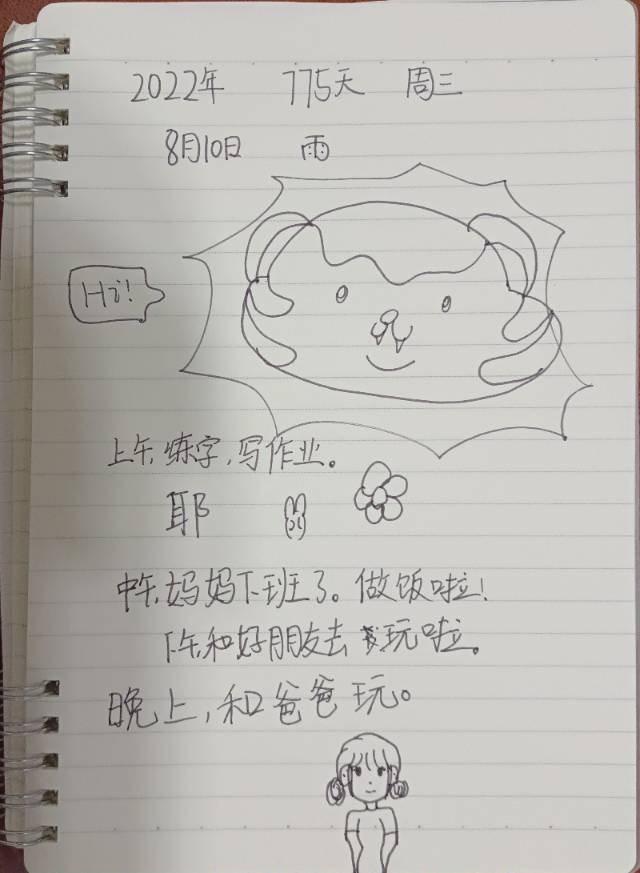 2022年 775天 周三
8月10日 雨
Hi!
上午,练字,写作业。
耶
中午,妈妈下班了。做饭啦!
下午,和好朋友去玩啦。
晚上,和爸爸玩。